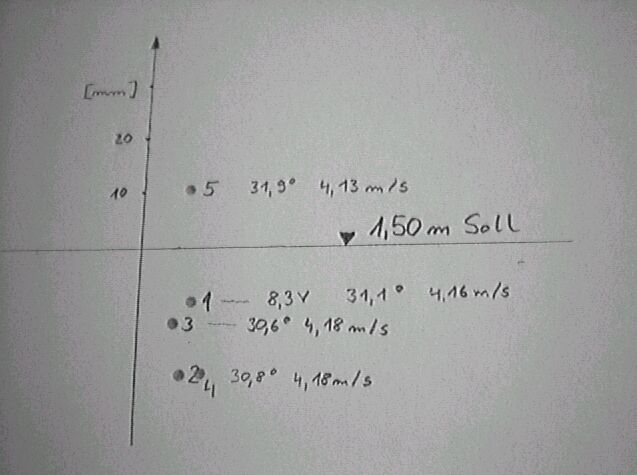 [mm]
20
10
5 31,9° 4,13 m/s
1,50 m Soll
1 — 8,3V 31,1° 4,16 m/s
3 — 30,6° 4,18 m/s
2 4 30,8° 4,18 m/s